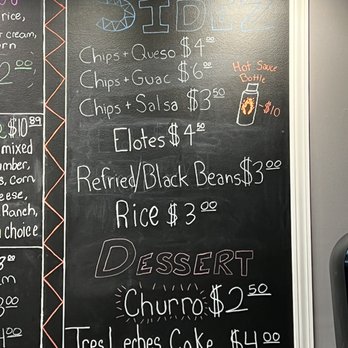 SIDEZ
Chips + Queso $4⁰⁰
Chips + Guac $6⁰⁰
Chips + Salsa $3⁵⁰
Hot Sauce
Bottle
$10
Elotes $4⁵⁰
Refried/Black Beans $3⁰⁰
Rice $3⁰⁰
DESSERT
Churro $2⁵⁰
Tres Leches Cake $4⁰⁰
rice,
cream,
2⁰⁰
$10⁸⁹
mixed
corn
Ranch,
choice